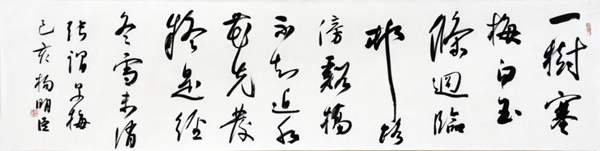 一樹寒
梅白玉
條迴臨
邨路
傍谿橋
不知近水
花先發
疑是經
冬雪未消
張謂早梅
己亥楊明臣